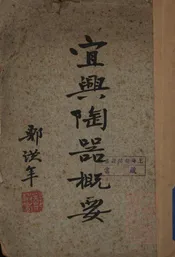 宜興陶器概要
鄭洪年